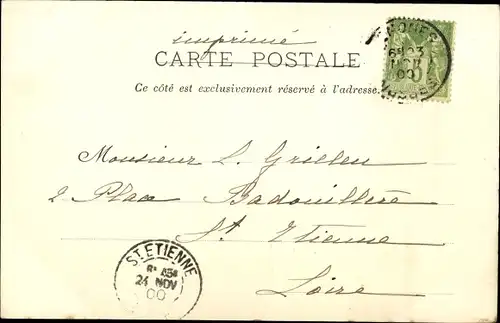 imprimé
CARTE POSTALE
Ce côté est exclusivement réservé à l'adresse.
23
NOV
00
Monsieur L. Grillen
2 Place Badouillère
St Etienne
Loire
ST ETIENNE
24 NOV
00